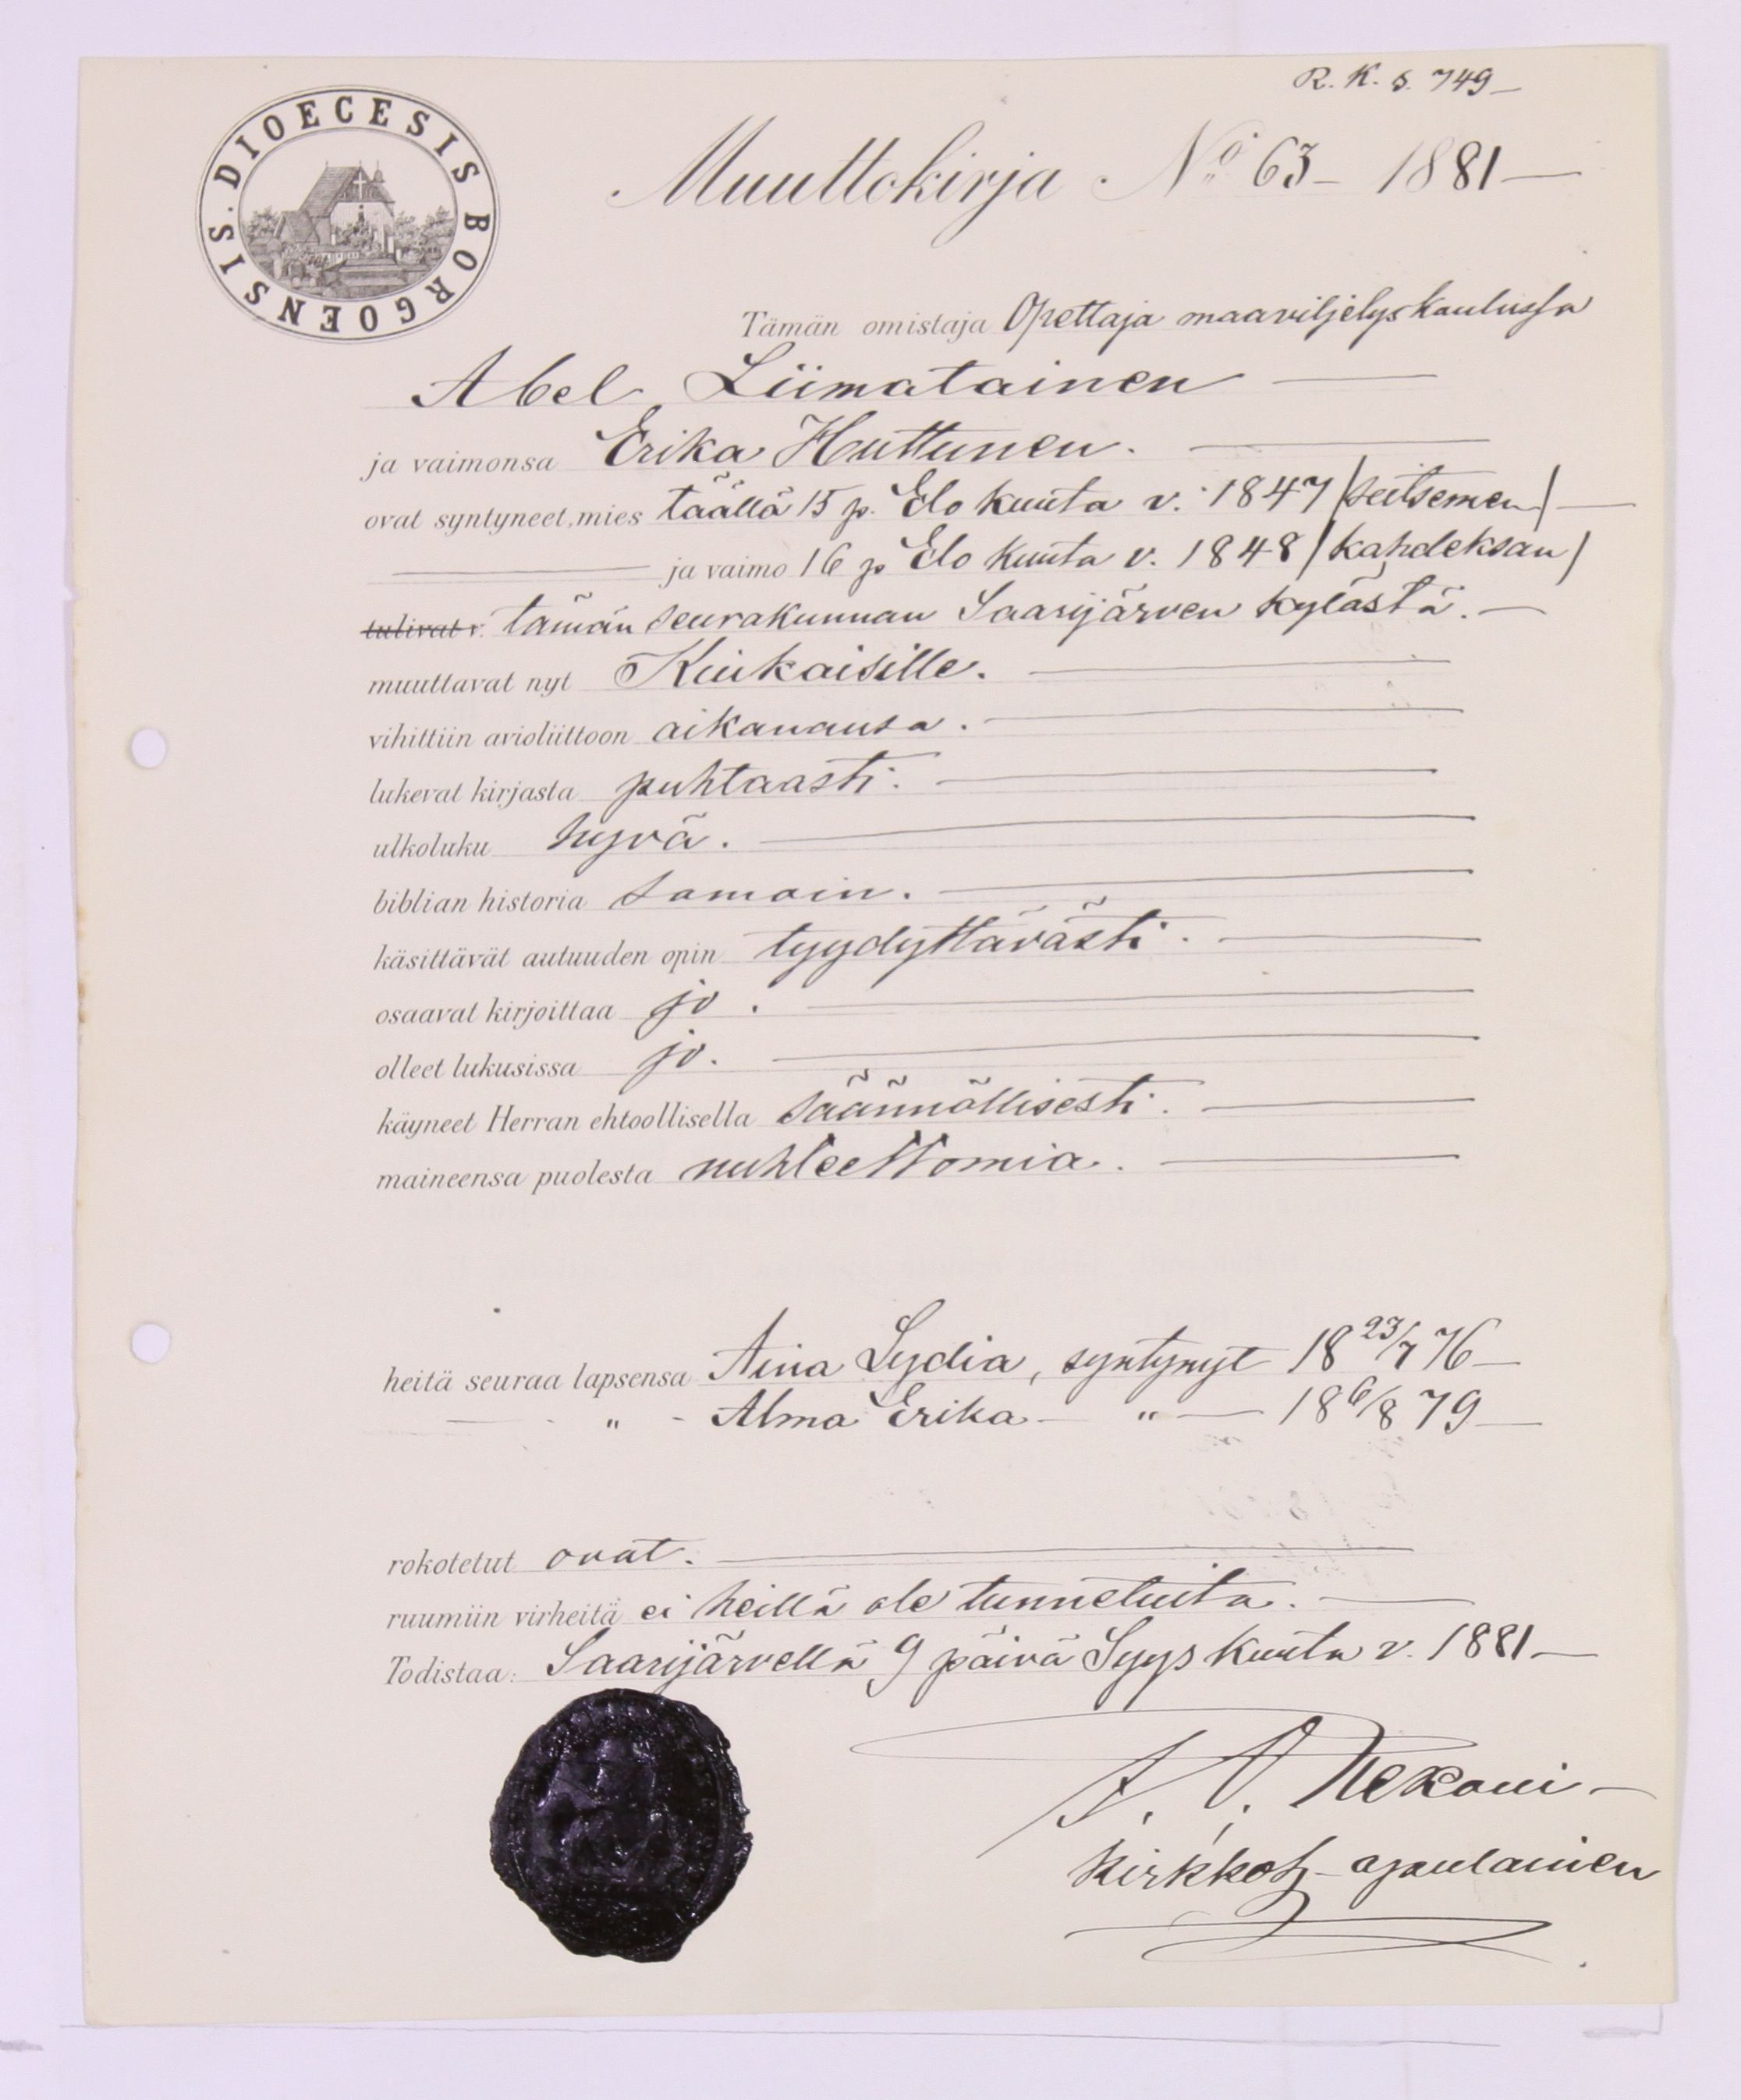 R. K. s. 749 —
DIOECESIS BORGOENSIS.
Muuttokirja No 63 – 1881 —
Tämän omistaja Opettaja maaviljelyskoulussa
Abel Liimatainen —
ja vaimonsa Erika Huttunen. —
ovat syntyneet, mies täällä 15 p. Elo kuuta v. 1847 /seitsemen/ —
— ja vaimo 16 p Elo kuuta v. 1848 /kahdeksan/
tulivat v. tämän seurakunnan Saarijärven kylästä. —
muuttavat nyt Kiukaisille. —
vihittiin avioliittoon aikanansa. —
lukevat kirjasta puhtaasti. —
ulkoluku hyvä. —
biblian historia samoin. —
käsittävät autuuden opin tyydyttävästi. —
osaavat kirjoittaa jo. —
olleet lukusissa jo. —
käyneet Herran ehtoollisella säännöllisesti. —
maineensa puolesta nuhteettomia. —
heitä seuraa lapsensa Aina Lydia, syntynyt 18 23/7 76 —
— " - Alma Erika — " — 18 6/8 79 —
rokotetut ovat. —
ruumiin virheitä ei heillä ole tunnetuita. —
Todistaa: Saarijärvellä 9 päivä Syys kuuta v. 1881 —
kirkkoh. apulainen